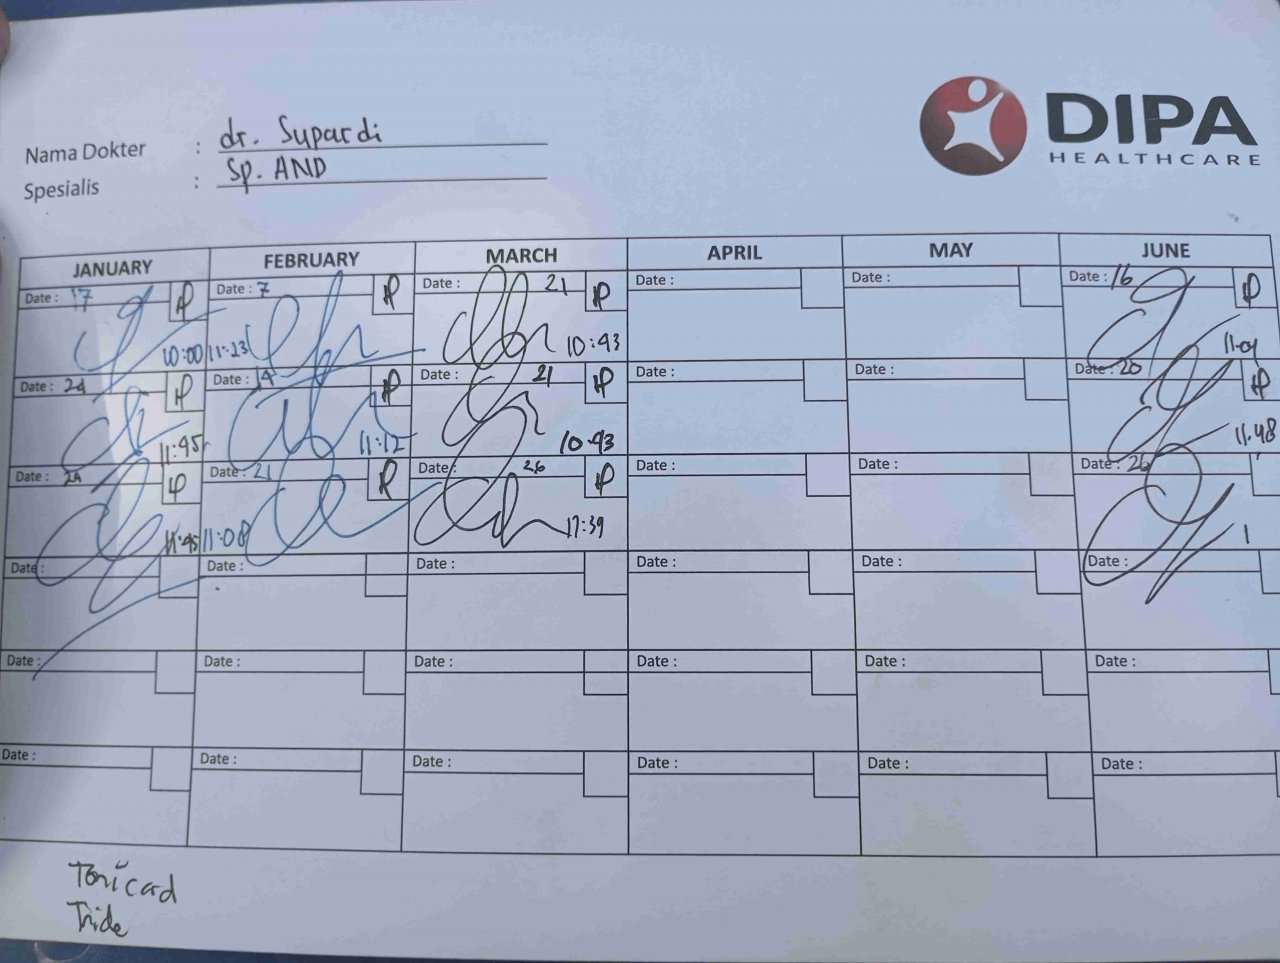 DIPA
HEALTHCARE
Nama Dokter : dr. Supardi
Spesialis : Sp. AND
JANUARY FEBRUARY MARCH APRIL MAY JUNE
Date : 17 Date : 7 Date : 21 Date : Date : Date : 16
10:00 11:23 10:43 11.01
Date : 24 Date : 14 Date : 21 Date : Date : Date : 20
11:45 11:12 10.43 11.48
Date : Date : 21 Date : 26 Date : Date : Date : 26
11:45 11:08 17:39
Date : Date : Date : Date : Date : Date :
Date : Date : Date : Date : Date : Date :
Date : Date : Date : Date : Date : Date :
Tonicard
Tride